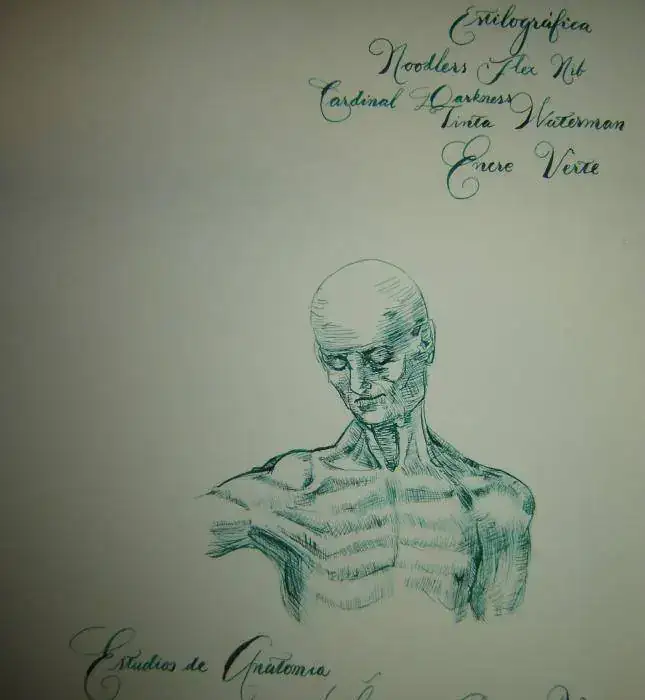 Estilográfica
Noodlers Flex Nib
Cardinal Darkness
Tinta Waterman
Encre Verte
Estudios de Anatomia